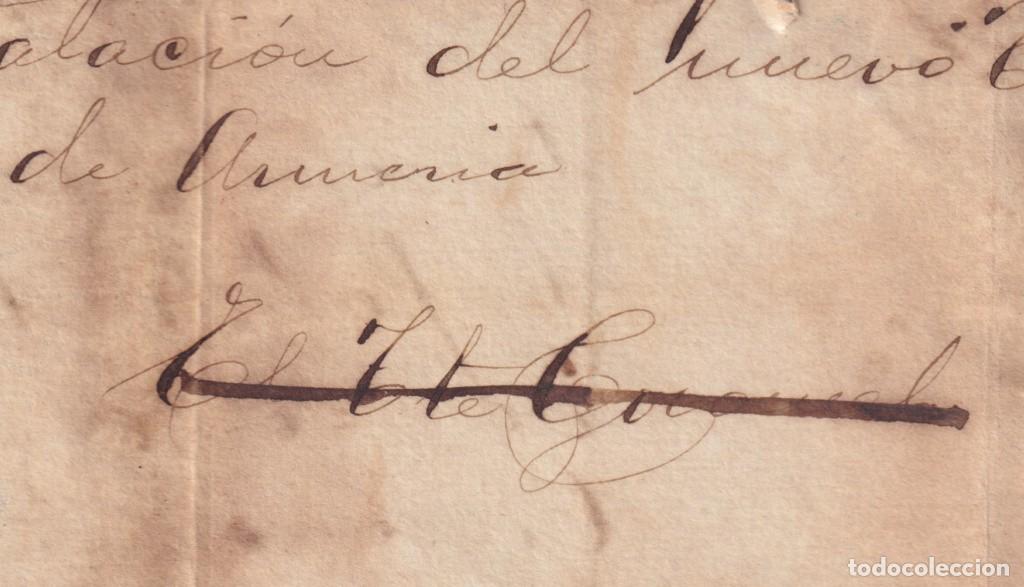 alación del nuevo
de Armeria
El Tte Coronel
todocoleccion